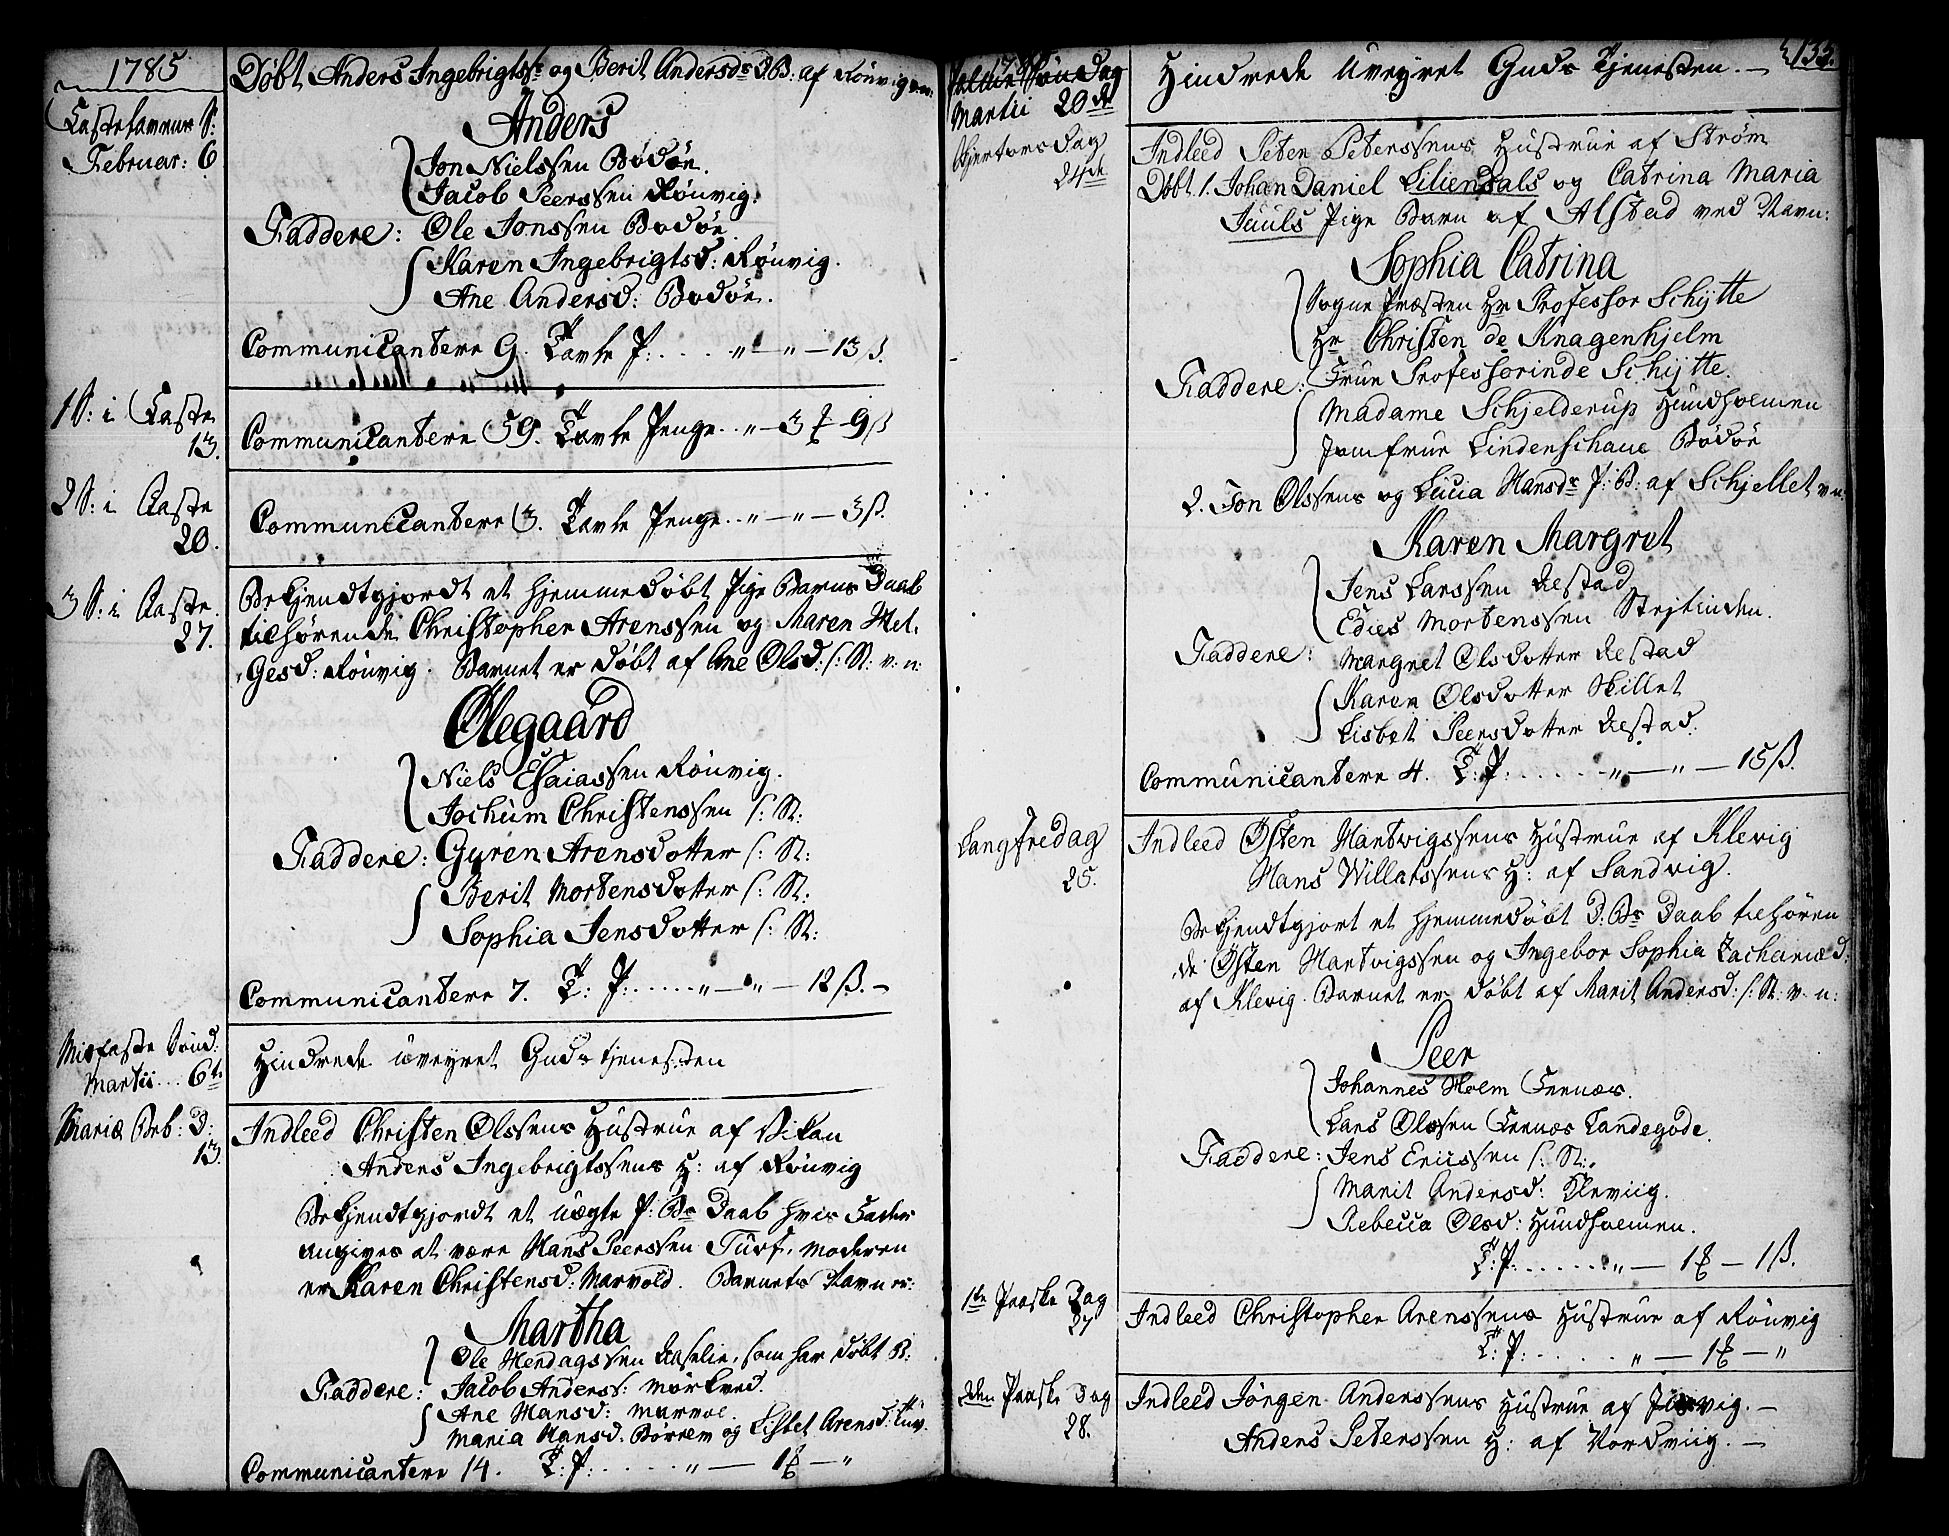 1785
Fastelavns S:
Februar: 6
Døbt Anders Ingebrigtss: og Berit Andersdr D.B: af Rönvig v.n:
Anders
Jon Nielssen Bodöe.
Jacob Peerssen Rönvig.
Faddere: Ole Jonssen Bodöe
Karen Ingebrigtsd: Rönvig.
Ane Andersd: Bodöe.
Communicantere 9. Tavle P: . . . . „ — „ — 13 ß.
1 S: i Faste
13.
Communicantere 59. Tavle Penge . . „ — 3 ₻ — 9 ß
2 S: i Faste
20.
Communicantere 3. Tavle Penge . . „ — „ — 3 ß.
3 S: i Faste
27.
Bekjendtgjordt et hjemmedøbt Pige Barns Daab
tilhørende Christopher Arenssen og Maren Hel-
gesd: Rönvig. Barnet er døbt af Ane Olsd: s: St: v. n:
Olegaard
Niels Esaiassen Rönvig.
Jochum Christenssen s: St:
Faddere: Guren Arensdotter s: St:
Berit Mortensdotter s: St:
Sophia Jensdotter s: St:
Communicantere 7. T: P: . . . . . „ — „ — 12 ß. —
Midfaste Sönd:
Martii . . . 6te
Hindrede uveyret Guds tjenesten
Mariæ Beb: D:
13.
Indleed Christen Olssens Hustrue af Vikan
Anders Ingebrigtssens H: af Rönvig
Bekjendtgjordt et uægte P: Bs Daab hvis Fader
angives at være Hans Peerssen Turf, moderen
er Karen Christensd: Marvold. Barnets Navn er:
Martha
Ole Hendagssen, som har døbt B:
Faddere: Jacob Anderss: Mörkved.
Ane Hansd: Marvol.
Maria Hansd. og Lisbet Arensd:
Communicantere 14. T: P: . . . . . . „ — 1 ₻ — „
Palme Söndag
Martii 20de
Hindrede Uveyret Guds Tjenesten. — 135.
Skjertorsdag
24de
Indleed Peter Peterssens Hustrue af Ström
Døbt. 1. Johan Daniel Liliendals og Catrina Maria
Juuls Pige Barn af Alstad ved Navn:
Sophia Catrina
Sogne Præsten Hr Professor Schytte
Hr Christen de Knagenhjelm
Faddere: Frue Professorinde Schytte.
Madame Schjelderup Hundholmen
Jomfrue Lindenschaue Bodöe
2. Jon Olssens og Lucia Hansdr P: B: af Schjellet v n:
Karen Margret
Jens Larssen Restad
Edies Mortenssen Strejtinden.
Faddere: Margret Olsdotter Restad
Karen Olsdotter Skillet
Lisbet Peersdotter Restad.
Communicantere 4. T: P: . . . . . „ — „ — 15 ß.
Langfredag
25.
Indleed Östen Hartvigssens Hustrue af Klevig
Hans Willatssens H: af Sandvig.
Bekjendtgjort et hjemmedøbt D. Bs Daab tilhören
de Östen Hartvigssen og Ingebor Sophia Zachariæd:
af Klevig. Barnet er døbt af Marit Andersd: s: St: v. n:
Peer
Johannes Holm Fernæs.
Lars Olssen Fernæs Landegode.
Faddere: Jens Ericssen s: St:
Marit Andersd: Klevig.
Rebecca Olsd: Hundholmen.
T: P: . . . . . . „ — 1 ₻ — 1 ß.
1te Paaske Dag
27
Indleed Christopher Arenssens Hustrue af Rönvig
T: P: . . . . . „ — 1 ₻ — „
2den Paaske Dag
28.
Indleed Jörgen Anderssens Hustrue af —
Anders Peterssen H: af Nordviig. —